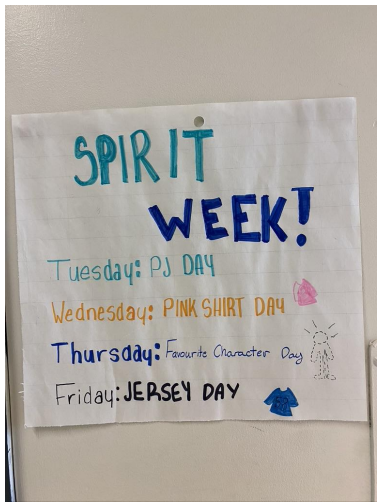 SPIRIT
WEEK!
Tuesday: PJ DAY
Wednesday: PINK SHIRT DAY
Thursday: Favourite Character Day
Friday: JERSEY DAY